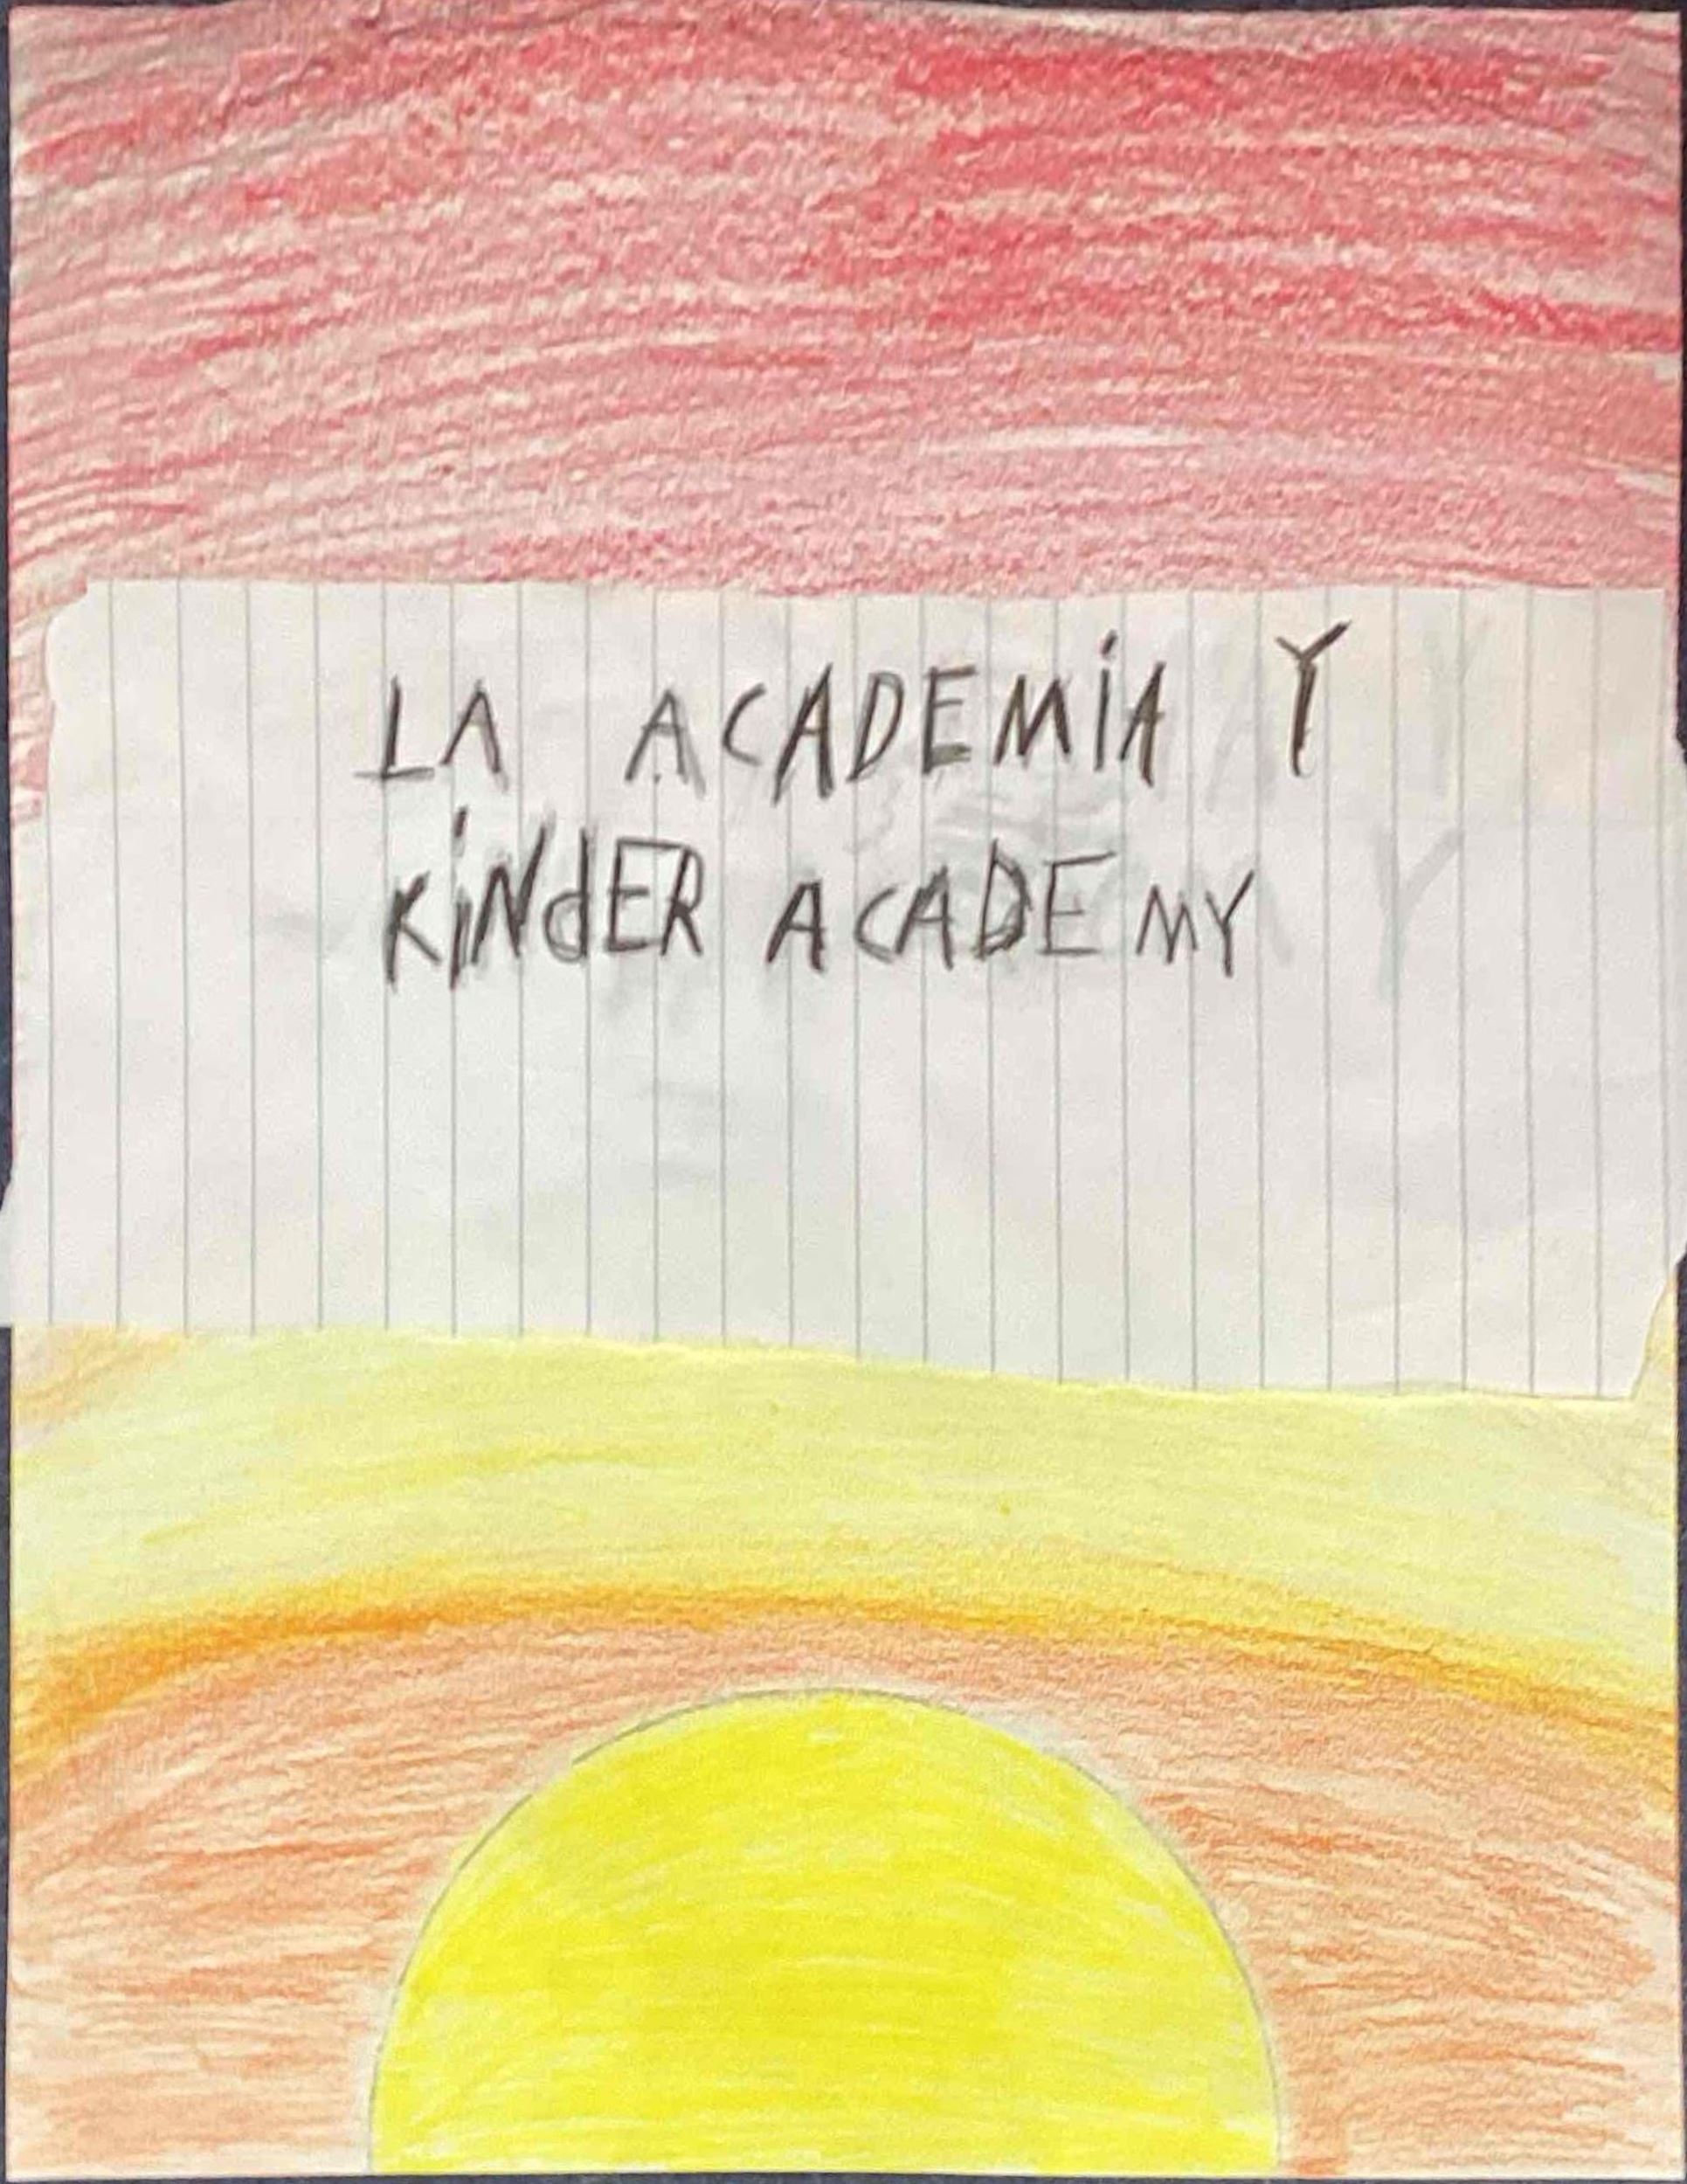 LA ACADEMiA Y
KiNdER ACADEMY